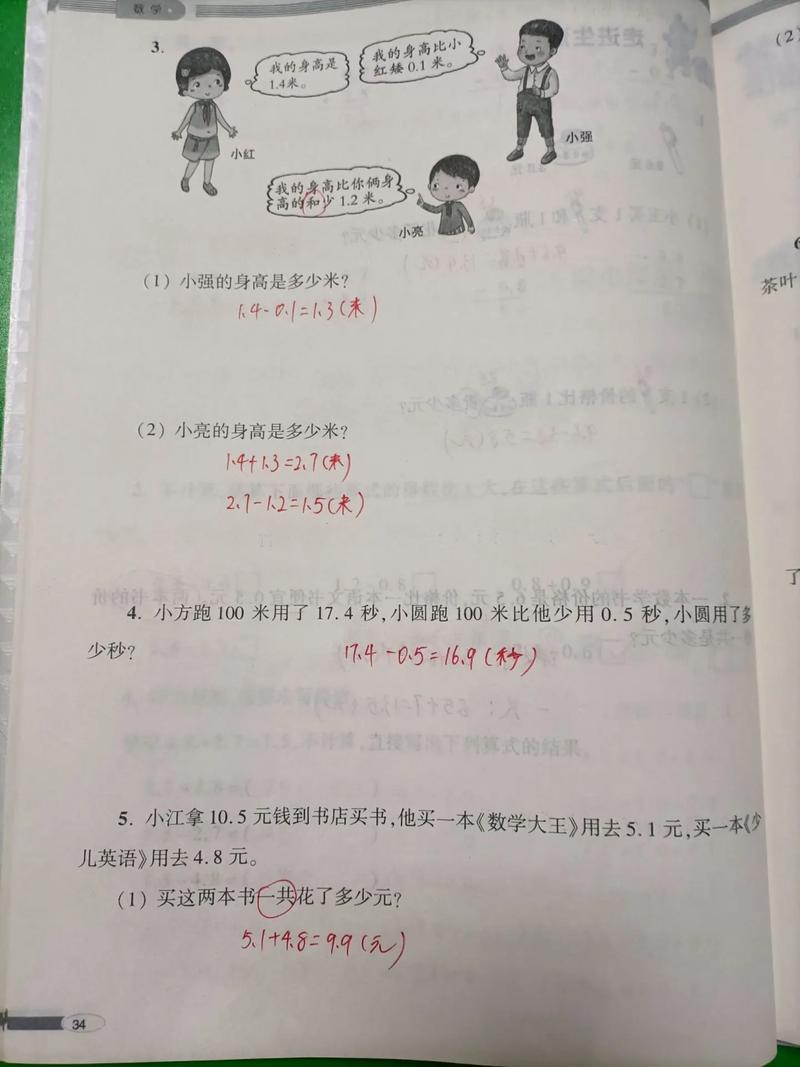 数学
3.
我的身高是
1.4米。
我的身高比小
红矮0.1米。
小红
小强
我的身高比你俩身
高的和少1.2米。
小亮
(1) 小强的身高是多少米?
1.4-0.1=1.3(米)
(2) 小亮的身高是多少米?
1.4+1.3=2.7(米)
2.7-1.2=1.5(米)
4. 小方跑100米用了17.4秒,小圆跑100米比他少用0.5秒,小圆用了多
少秒?
17.4-0.5=16.9(秒)
5. 小江拿10.5元钱到书店买书,他买一本《数学大王》用去5.1元,买一本《少
儿英语》用去4.8元。
(1) 买这两本书一共花了多少元?
5.1+4.8=9.9(元)
34
(2)
6
茶叶
了